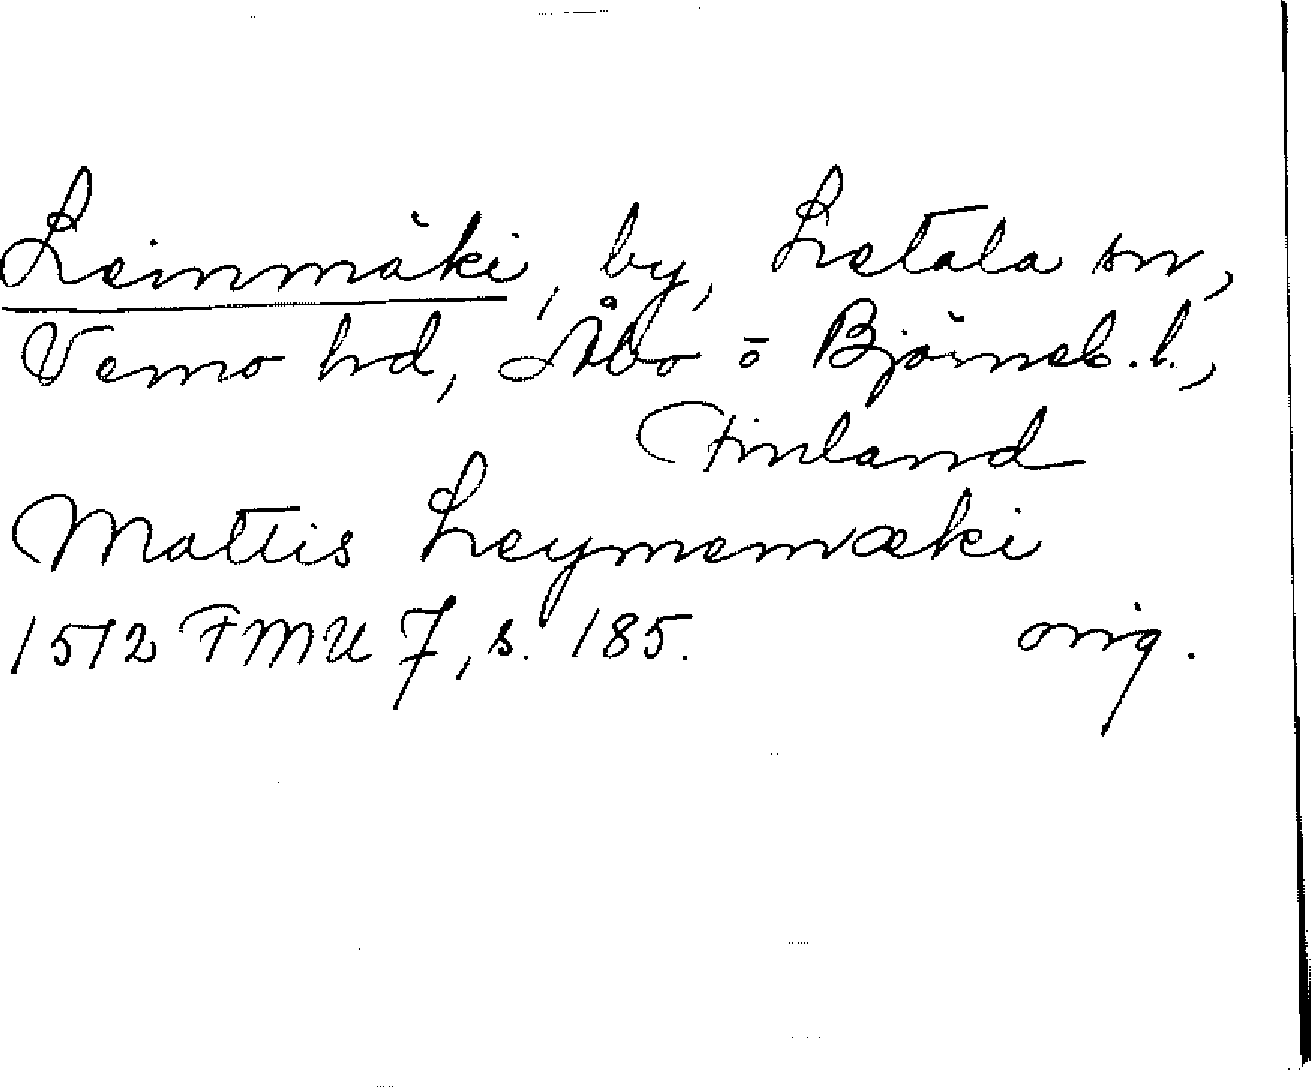 Leinmäki, by, Letala sn,
Vemo hd, Åbo o Björneb. l.,
Finland
Mattis Leymemæki
1512 FMU 7, s. 185. orig.